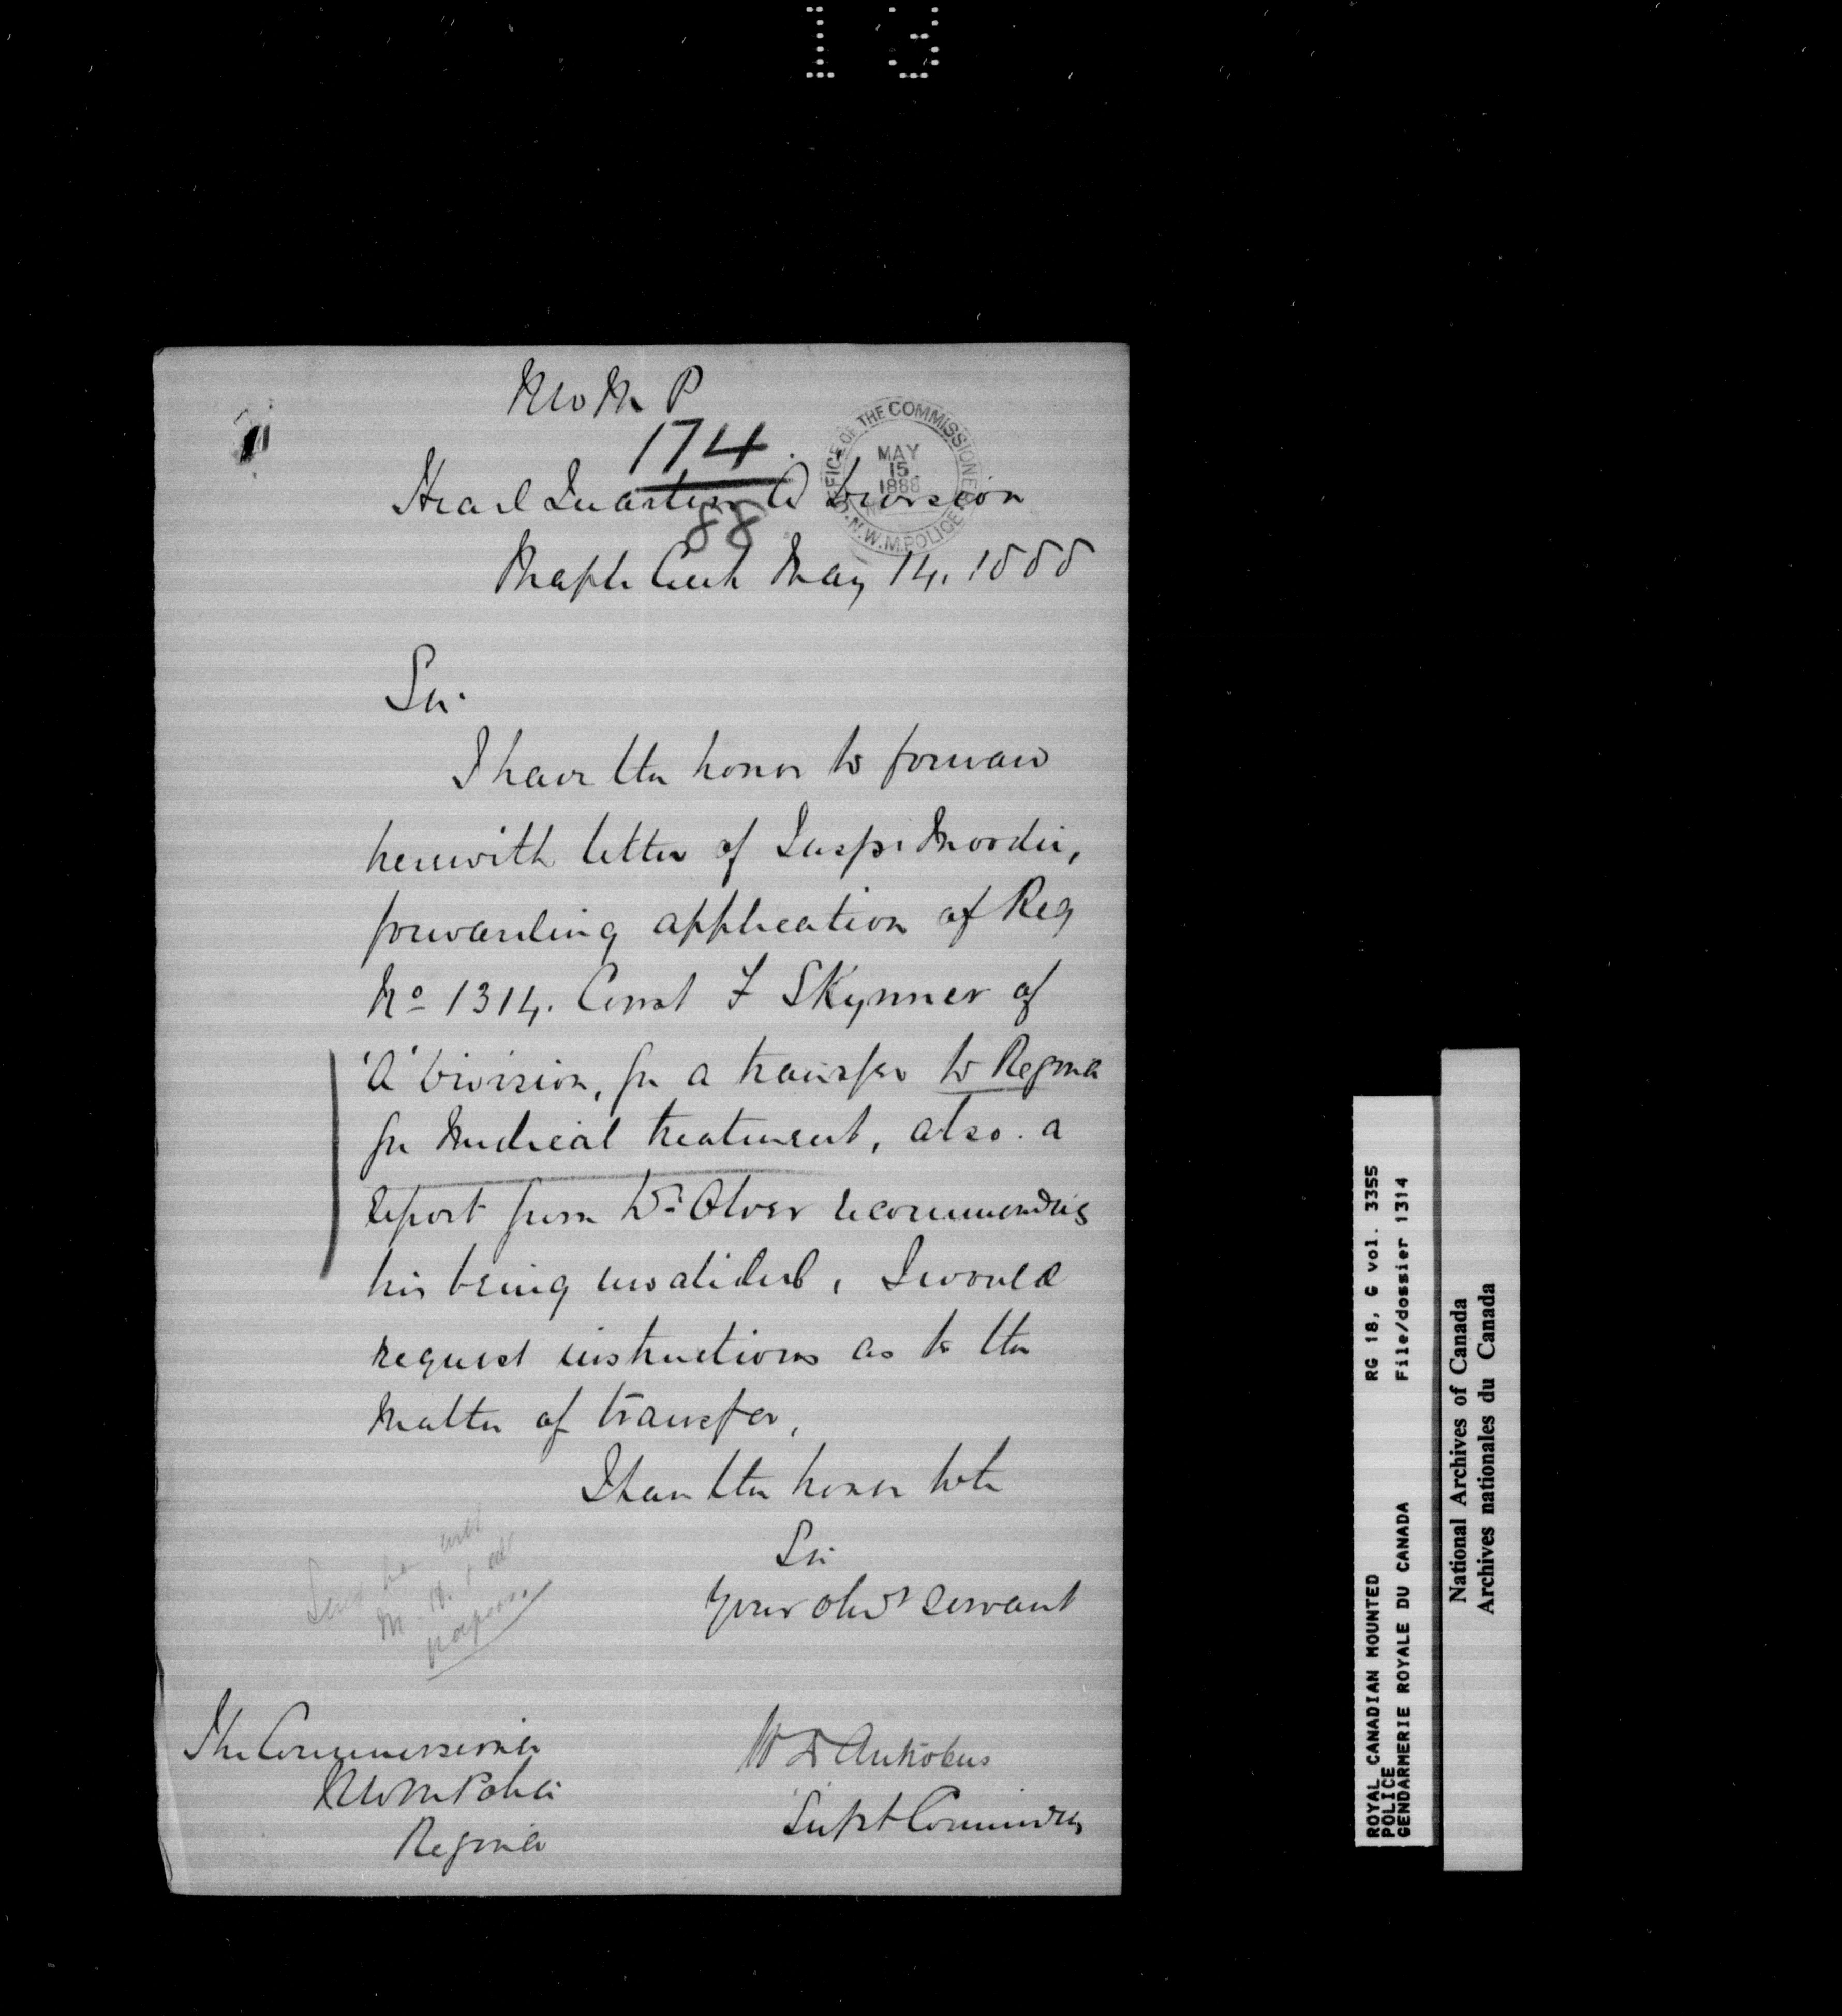 N W M P
174
88
Head Quarters A Division
Maple Creek May 14. 1888
OFFICE OF THE COMMISSIONER
MAY
15
1888
N.W.M. POLICE
Sir.
I have the honor to forward
herewith letter of Insp. Moodie,
forwarding application of Reg
No 1314. Const F Skynner of
'A' Division, for a transfer to Regina
for Medical treatment, also a
report from Dr. Olver recommending
his being invalided, I would
request instructions as to the
matter of transfer,
I have the honor to be
Sir
Your obdt servant
W D Antrobus
Supt Commndg
Send her
M. H. &
papers.
The Commissioner
N W M Police
Regina
ROYAL CANADIAN MOUNTED
POLICE
GENDARMERIE ROYALE DU CANADA
RG 18, G vol. 3355
File/dossier 1314
National Archives of Canada
Archives nationales du Canada